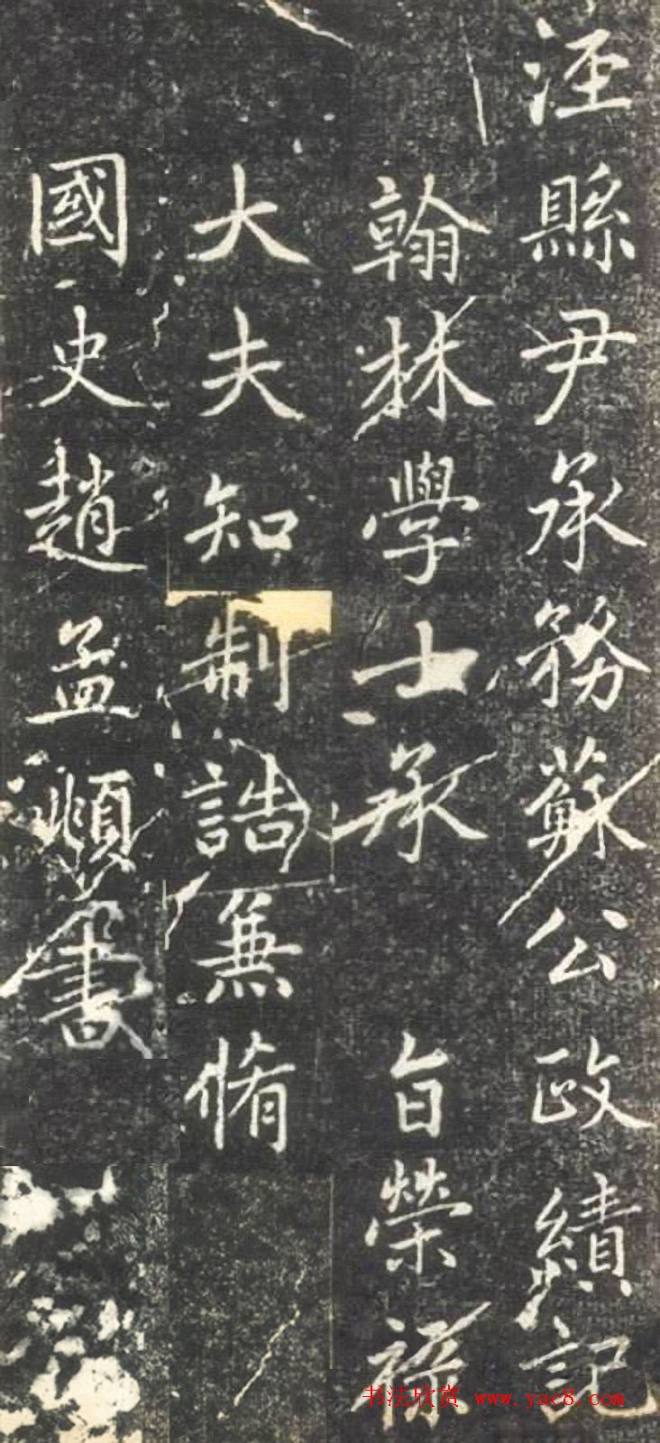 涇縣尹承務蘇公政績記
翰林學士承旨榮祿
大夫知制誥兼脩
國史趙孟頫書
书法欣赏 www.yac8.com